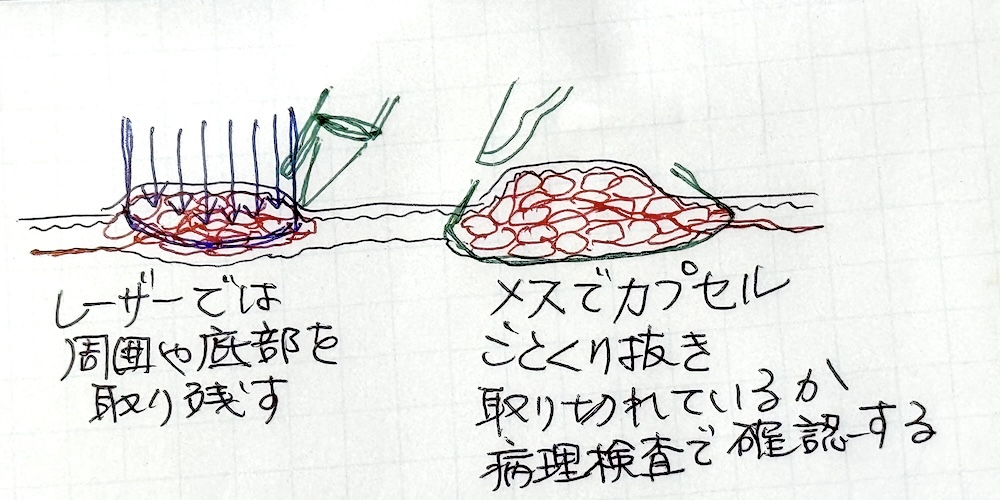 レーザーでは
周囲や底部を
取り残す
メスでカプセル
ごとくり抜き
取り切れているか
病理検査で確認する